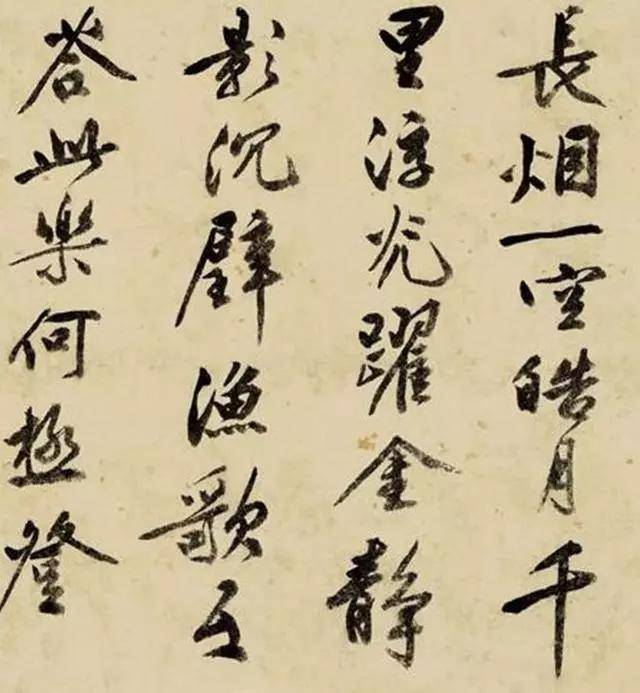 長烟一空皓月千
里浮光躍金静
影沉壁漁歌互
荅此樂何極登